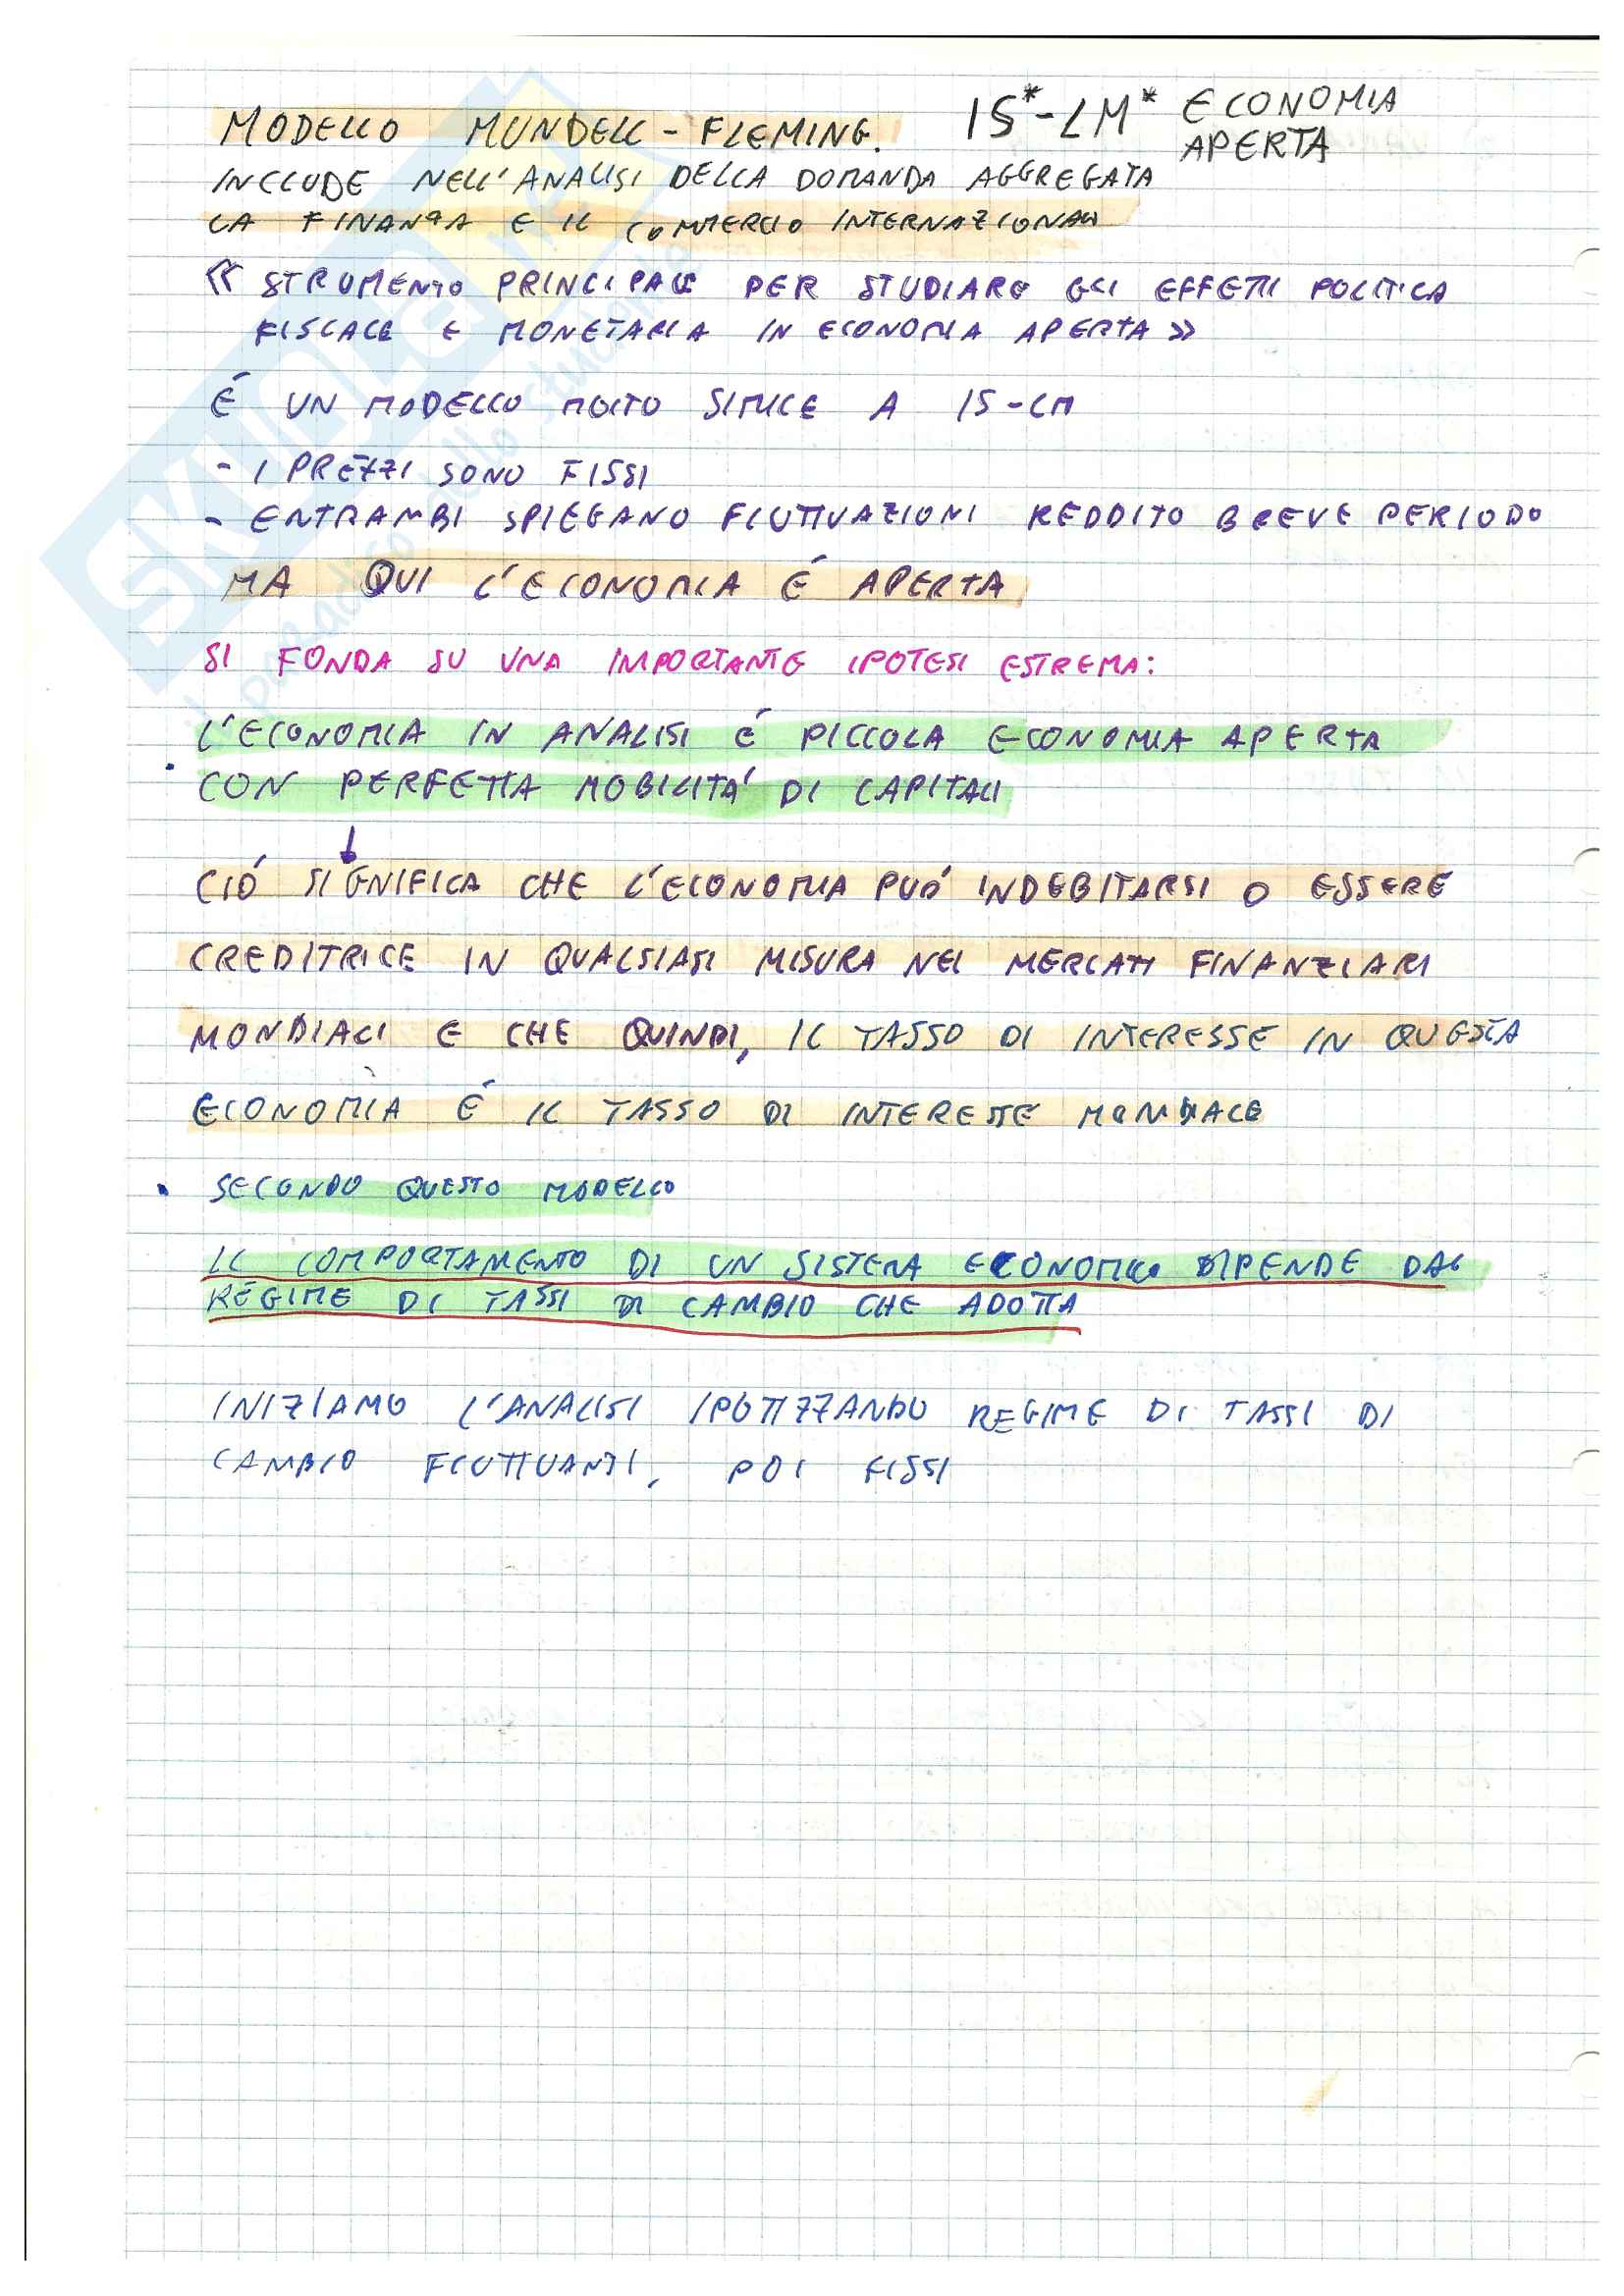 MODELLO MUNDELL-FLEMING. IS*-LM* ECONOMIA
APERTA
INCLUDE NELL'ANALISI DELLA DOMANDA AGGREGATA
LA FINANZA E IL COMMERCIO INTERNAZIONALE
« STRUMENTO PRINCIPALE PER STUDIARE GLI EFFETTI POLITICA
FISCALE E MONETARIA IN ECONOMIA APERTA »
É UN MODELLO MOLTO SIMILE A IS-LM
- I PREZZI SONO FISSI
- ENTRAMBI SPIEGANO FLUTTUAZIONI REDDITO BREVE PERIODO
MA QUI L'ECONOMIA É APERTA
SI FONDA SU UNA IMPORTANTE IPOTESI ESTREMA:
L'ECONOMIA IN ANALISI É PICCOLA ECONOMIA APERTA
• CON PERFETTA MOBILITA' DI CAPITALI
↓
CIÓ SIGNIFICA CHE L'ECONOMIA PUÓ INDEBITARSI O ESSERE
CREDITRICE IN QUALSIASI MISURA NEI MERCATI FINANZIARI
MONDIALI E CHE QUINDI, IL TASSO DI INTERESSE IN QUESTA
ECONOMIA É IL TASSO DI INTERESSE MONDIALE
• SECONDO QUESTO MODELLO
IL COMPORTAMENTO DI UN SISTEMA ECONOMICO DIPENDE DAL
REGIME DI TASSI DI CAMBIO CHE ADOTTA
INIZIAMO L'ANALISI IPOTIZZANDO REGIME DI TASSI DI
CAMBIO FLUTTUANTI, POI FISSI